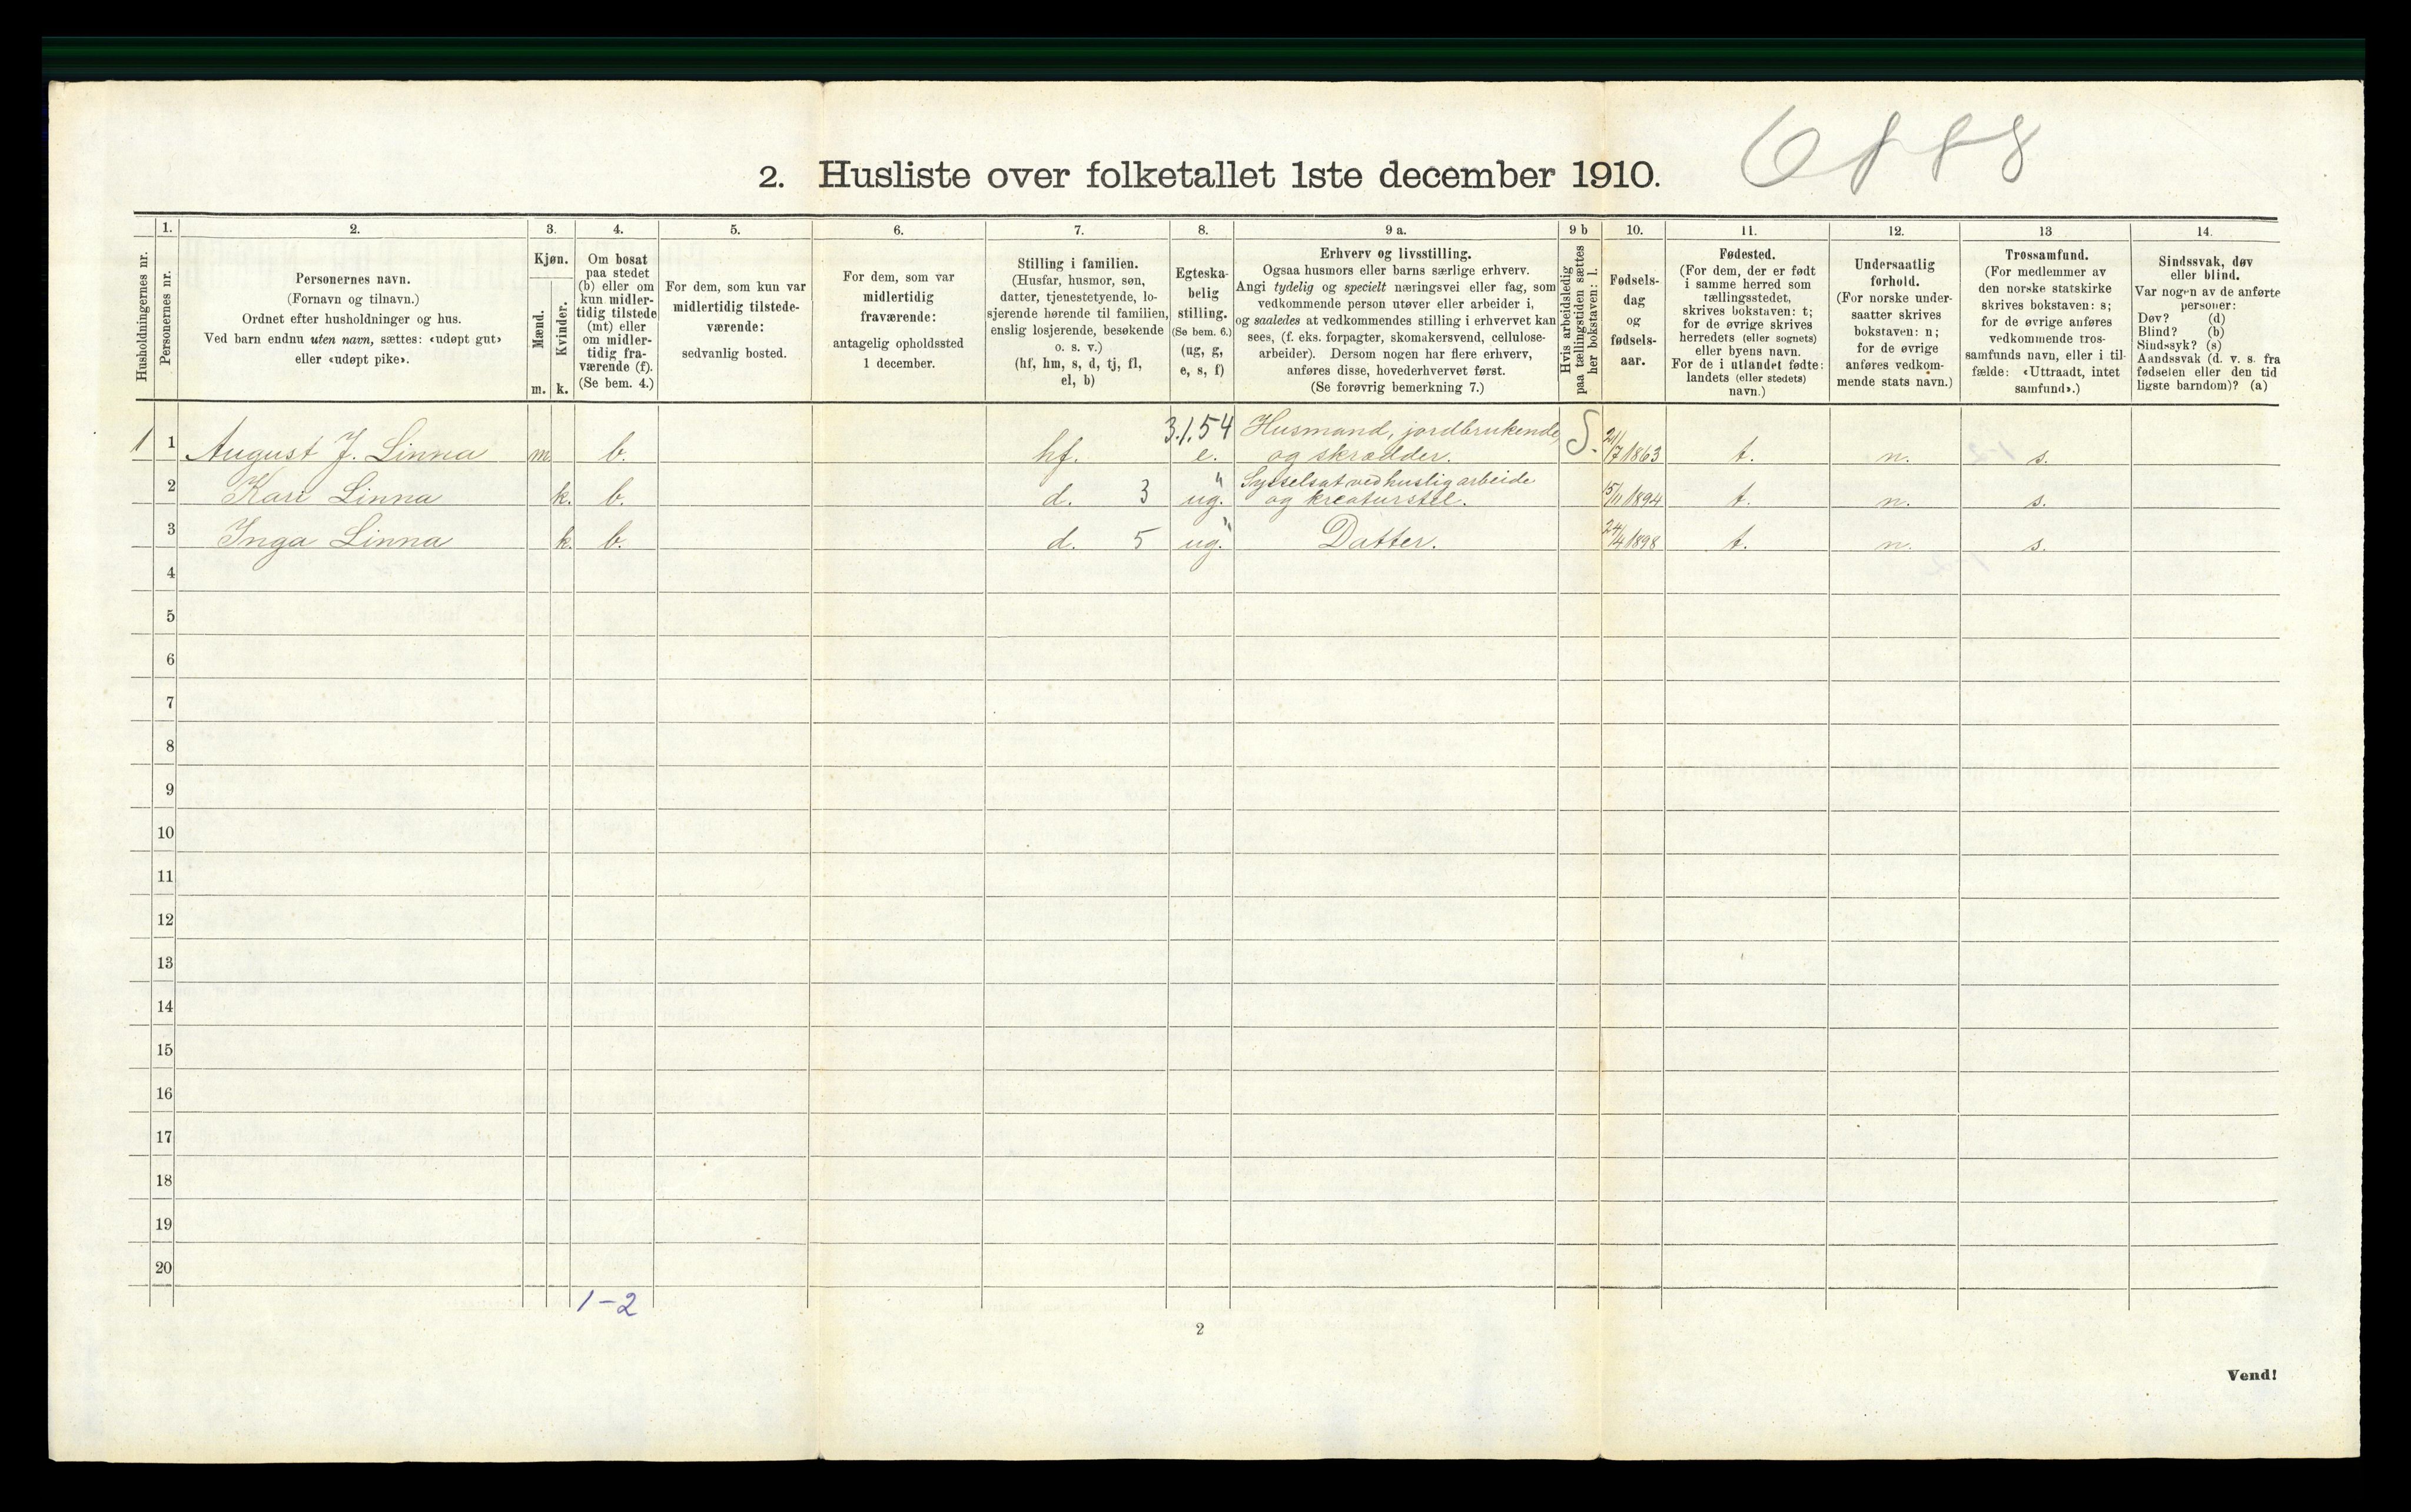 2. Husliste over folketallet 1ste december 1910.
Husholdningernes nr.
1.
Personernes nr.
2.
Personernes navn.
(Fornavn og tilnavn.)
Ordnet efter husholdninger og hus.
Ved barn endnu uten navn, sættes: «udøpt gut»
eller «udøpt pike».
3.
Kjøn.
Mænd.
Kvinder.
m. k.
4.
Om bosat
paa stedet
(b) eller om
kun midler-
tidig tilstede
(mt) eller
om midler-
tidig fra-
værende (f).
(Se bem. 4.)
5.
For dem, som kun var
midlertidig tilstede-
værende:
sedvanlig bosted.
6.
For dem, som var
midlertidig
fraværende:
antagelig opholdssted
1 december.
7.
Stilling i familien.
(Husfar, husmor, søn,
datter, tjenestetyende, lo-
sjerende hørende til familien,
enslig losjerende, besøkende
o. s. v.)
(hf, hm, s, d, tj, fl,
el, b)
8.
Egteska-
belig
stilling.
(Se bem. 6.)
(ug, g,
e, s, f)
9 a.
Erhverv og livsstilling.
Ogsaa husmors eller barns særlige erhverv.
Angi tydelig og specielt næringsvei eller fag, som
vedkommende person utøver eller arbeider i,
og saaledes at vedkommendes stilling i erhvervet kan
sees, (f. eks. forpagter, skomakersvend, cellulose-
arbeider). Dersom nogen har flere erhverv,
anføres disse, hovederhvervet først.
(Se forøvrig bemerkning 7.)
9 b
Hvis arbeidsledig
paa tællingstiden sættes
her bokstaven: l.
10.
Fødsels-
dag
og
fødsels-
aar.
11.
Fødested.
(For dem, der er født
i samme herred som
tællingsstedet,
skrives bokstaven: t;
for de øvrige skrives
herredets (eller sognets)
eller byens navn.
For de i utlandet fødte:
landets (eller stedets)
navn.)
12.
Undersaatlig
forhold.
(For norske under-
saatter skrives
bokstaven: n;
for de øvrige
anføres vedkom-
mende stats navn.)
13
Trossamfund.
(For medlemmer av
den norske statskirke
skrives bokstaven: s;
for de øvrige anføres
vedkommende tros-
samfunds navn, eller i til-
fælde: «Uttraadt, intet
samfund».)
14.
Sindssvak, døv
eller blind.
Var nogen av de anførte
personer:
Døv? (d)
Blind? (b)
Sindssyk? (s)
Aandssvak (d. v. s. fra
fødselen eller den tid
ligste barndom)? (a)
3.1.54 Husmand, jordbrukende,
1 1 August J. Linna m b. hf. e. og skrædder. S. 21/7 1863 t. n. s.
" Sysselsat ved huslig arbeide
2 Kari Linna k. b. d. 3 ug. og kreaturstel. 15/11 1894 t. n. s.
3 Inga Linna k. b. d. 5 ug. " Datter. 24/4 1898 t. n. s.
4
5
6
7
8
9
10
11
12
13
14
15
16
17
18
19
20
1-2
2
Vend!